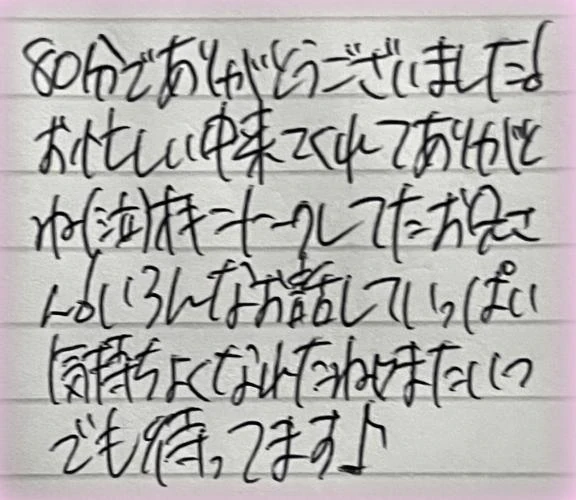 80分でありがとうございました!
お忙しい中来てくれてありがと
ね(泣)オキニトークしてたお兄さ
ん!いろんなお話していっぱい
気持ちよくなれたねまたいつ
でも待ってます♪